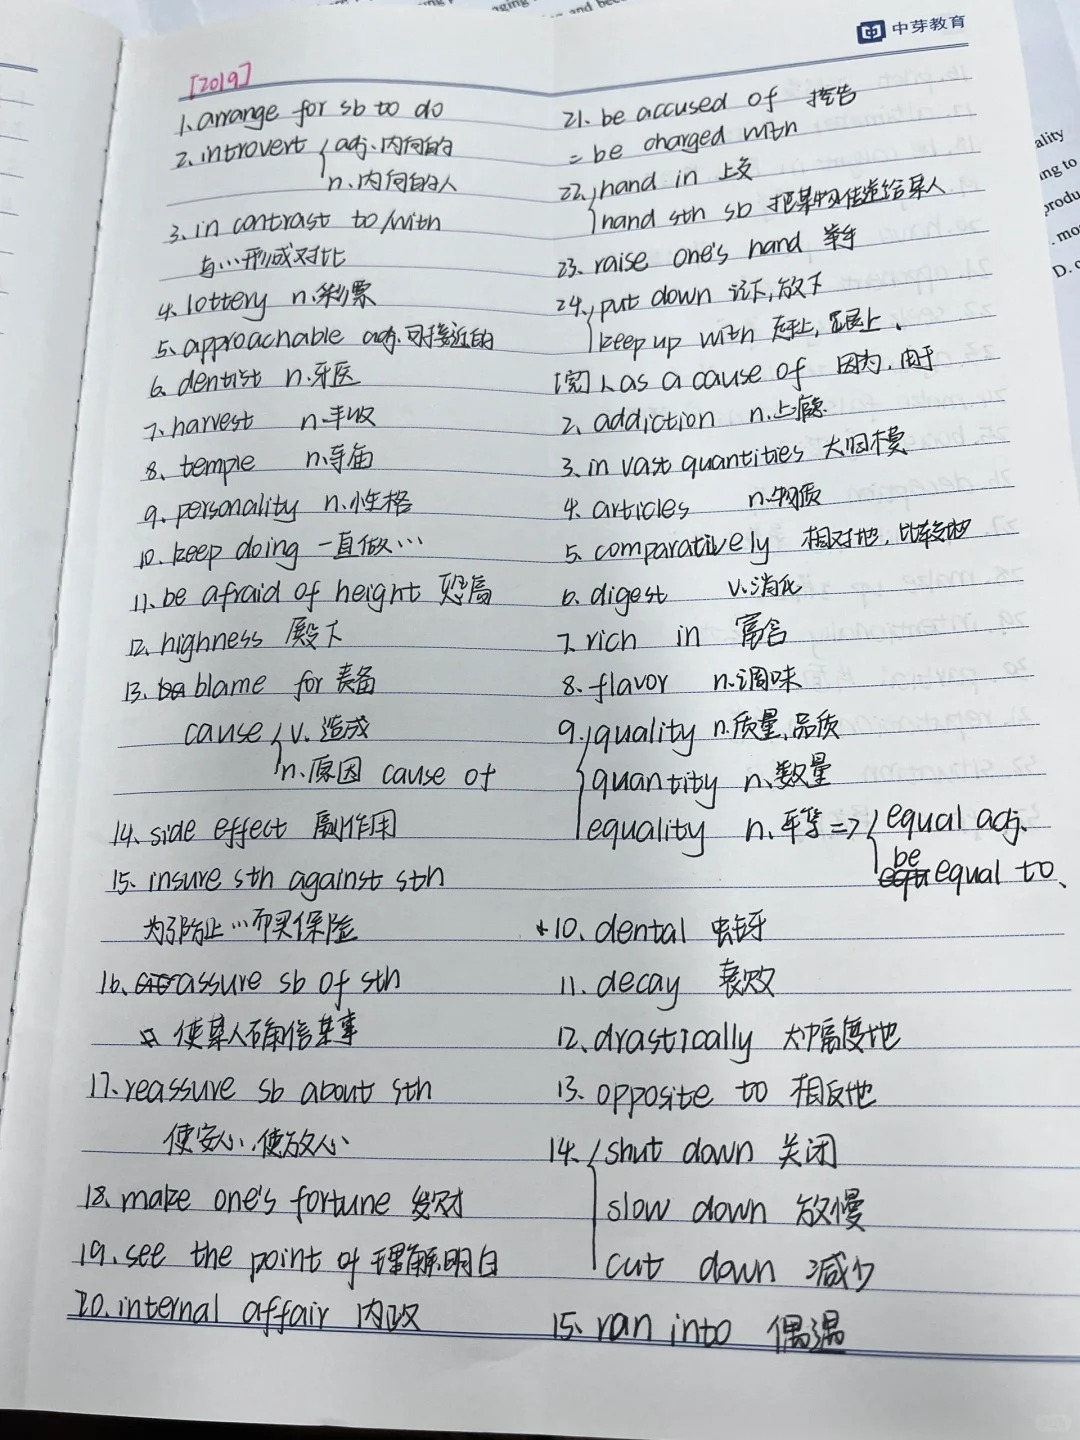 中芽教育
[2019]
1. arrange for sb to do
2. introvert adj. 内向的
n. 内向的人
3. in contrast to/with
与…形成对比
4. lottery n. 彩票
5. approachable adj. 可接近的
6. dentist n. 牙医
7. harvest n. 丰收
8. temple n. 寺庙
9. personality n. 性格
10. keep doing 一直做…
11. be afraid of height 恐高
12. highness 殿下
13. blame for 责备
cause v. 造成
n. 原因 cause of
14. side effect 副作用
15. insure sth against sth
为了防止…而买保险
16. assure sb of sth
使某人确信某事
17. reassure sb about sth
使安心, 使放心
18. make one's fortune 发财
19. see the point of 理解, 明白
20. internal affair 内政
21. be accused of 控告
= be charged with
22. hand in 上交
hand sth sb 把某物传递给某人
23. raise one's hand 举手
24. put down 记下, 放下
keep up with 赶上, 跟上.
[完] 1. as a cause of 因为, 由于
2. addiction n. 上瘾
3. in vast quantities 大规模
4. articles n. 物质
5. comparatively 相对地, 比较地
6. digest v. 消化
7. rich in 富含
8. flavor n. 调味
9. quality n. 质量, 品质
quantity n. 数量
equality n. 平等 => equal adj.
be equal to.
10. dental 蛀牙
11. decay 衰败
12. drastically 大幅度地
13. opposite to 相反地
14. shut down 关闭
slow down 放慢
cut down 减少
15. ran into 偶遇